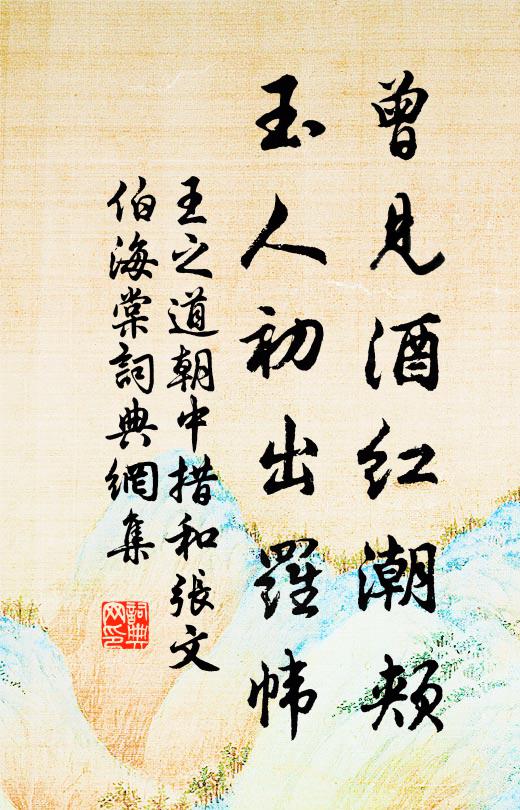 曾見酒红潮頰
玉人初出羅幃
王之道朝中措和張文
伯海棠詞典網集
詞典
网印